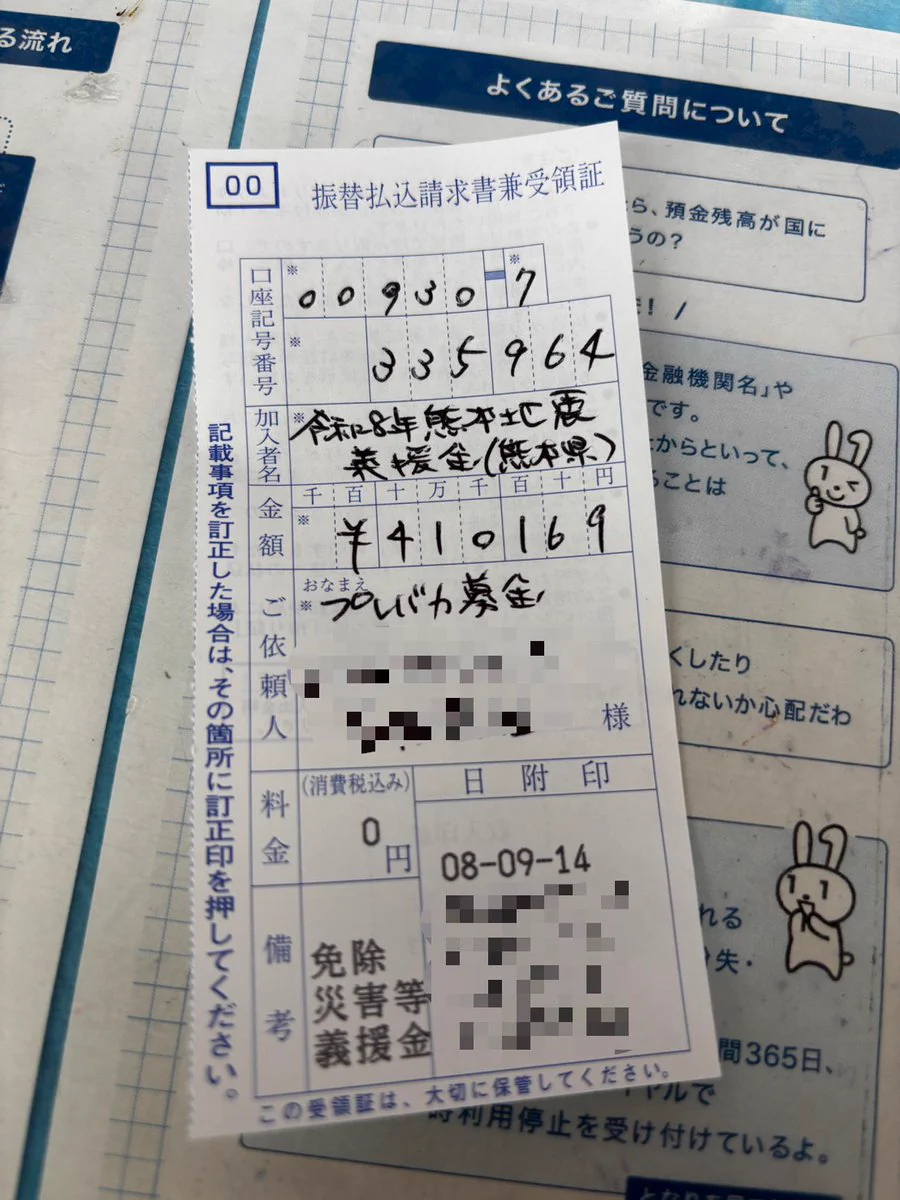 る流れ
よくあるご質問について
ら、預金残高が国に
うの?
ま! /
金融機関名」や
です。
たからといって、
ることは
くしたり
れないか心配だわ
れる
失・
間365日、
イヤルで
時利用停止を受け付けているよ。
00
振替払込請求書兼受領証
口座記号番号
※
00930-7
※
※
335964
加入者名
※
令和8年熊本地震
義援金(熊本県)
金額
千百十万千百十円
※
¥410169
ご依頼人
おなまえ
※
プレバカ募金
様
料金
(消費税込み)
0
円
日附印
08-09-14
備考
免除
災害等
義援金
記載事項を訂正した場合は、その箇所に訂正印を押してください。
この受領証は、大切に保管してください。